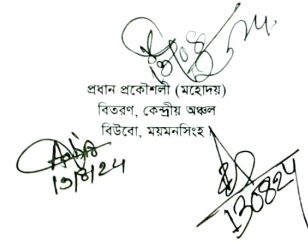 প্রধান প্রকৌশলী (মহোদয়)
বিতরণ, কেন্দ্রীয় অঞ্চল
বিউবো, ময়মনসিংহ।
13/8/24
130824